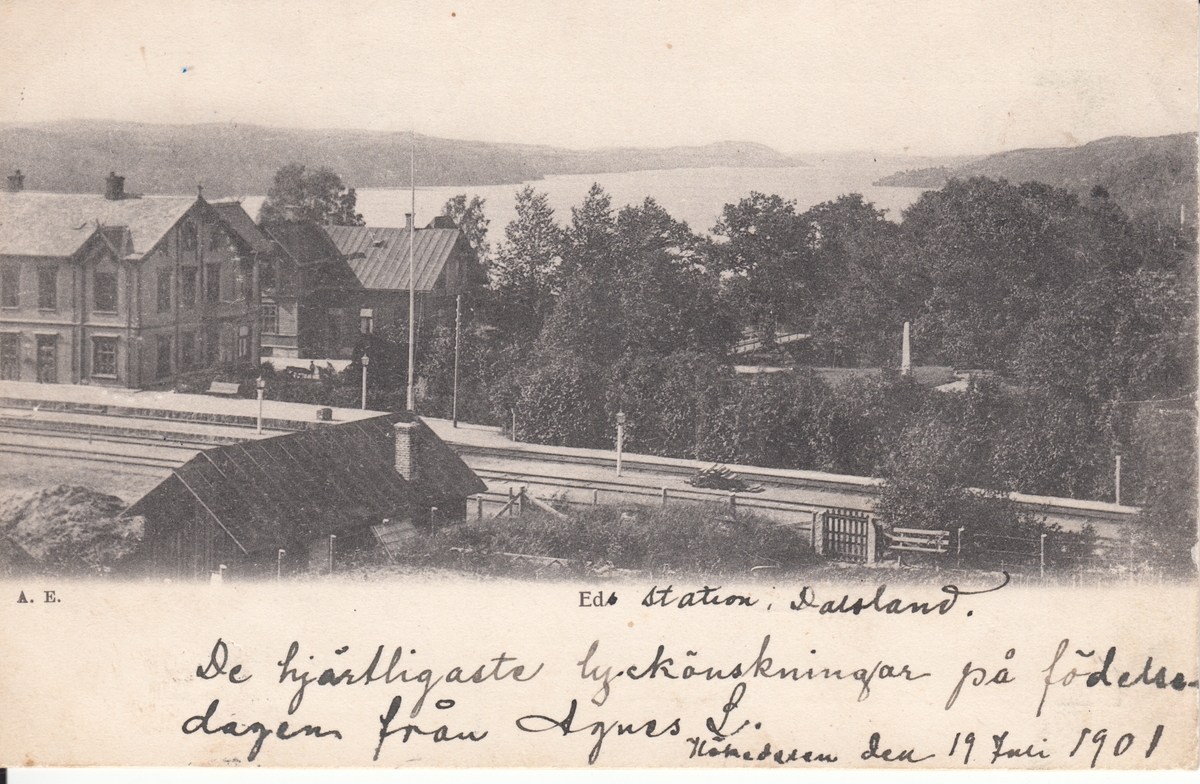 A. E.
Eds station, Dalsland.
De hjärtligaste lyckönskningar på födelse-
dagen från Agnes L.
den 19 Juli 1901